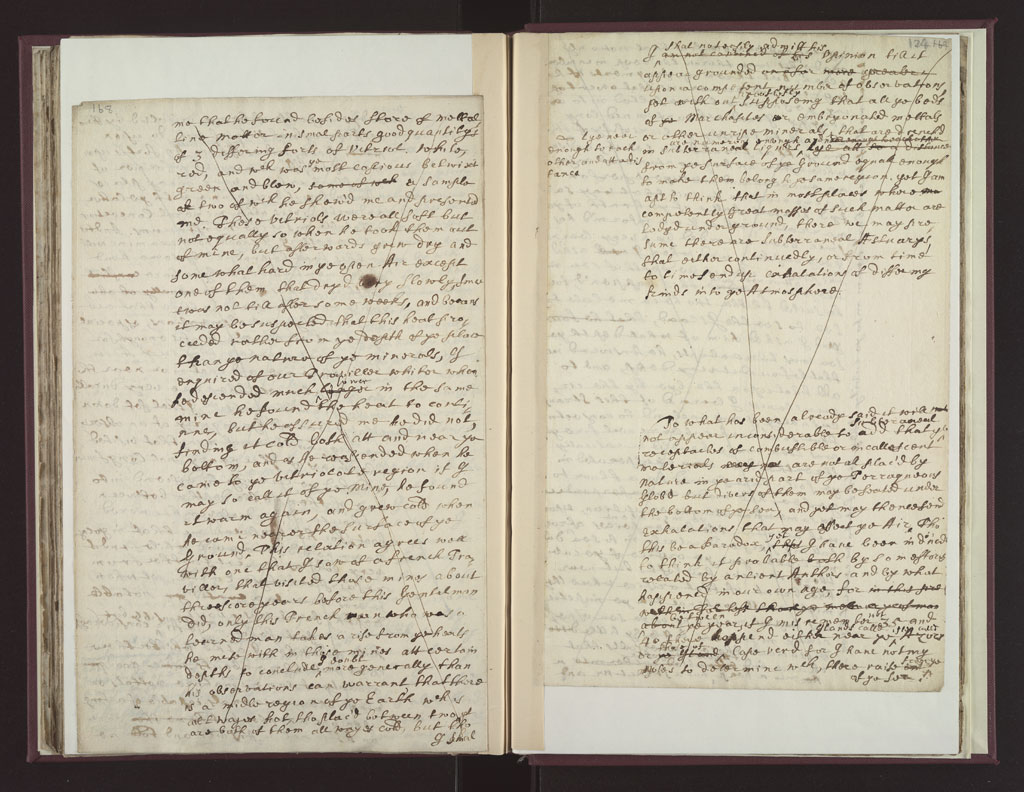 168
me that he found besides store of mettal
line matter in small parts good quantitys
of 3 differing sorts of vitriol, white,
red, and wch was most copious betwixt
green and blew, some of wch a sample
at two of wch he shew'd me and presented
me. These vitriols were all soft but
not equally so when he took them out
of mine, but afterwards grew dry and
somewhat hard in ye open Air except
one of them that dryd very slowly
twas not till after some weeks, and becaus
it may be suspected that this heat pro
ceeded rather from ye depth of ye place
than ye nature of ye minerals, I
enquired of our Traviller whitor when
he descended much lower in the same
mine he found the heat to conti
nue, but he assured me he did not,
finding it cold both att and near ye
bottom, and as he ascended when he
came to ye vitriolate region if I
may so call it of ye Mine, he found
it warm again, and grew cold when
he came nearer the surface of ye
Ground. This relation agrees well
with one that I saw of a French Tra
viller, that visited those mines about
threescore years before this Gentelman
did, only this French man who was a
learned man takes a rise from ye heats
he mett with in those mines att certain
depths to conclude more generally than
his observations can warrant that there
is a midle region of ye Earth wch is
all wayes hot, tho plac'd between two yt
are both of them all wayes cold, but tho
I shal
124
that not easily admitt his
I am not convinced of his opinion till it
appear grounded
upon a competent number of observations
yet with out supposing that all ye beds
of ye Marchasites or embryonated mettals
or other unripe minerals, that are
are numerous enough and
in subterraneal
lye near
enough to each
other, and att a dis
tance
from ye surface of ye Ground equall enough
to make them belong to ye same region. yet I am
apt to think that in most places where
competently great masses of such matter are
lodg'd underground, there we may pre
sume there are subterraneal Æstuarys,
that either continuedly, or from time
to time send up exhalations of differing
kinds into ye Atmosphere.
To what has been already said it will
not appear inconsiderable to add that ye subterraneal
receptacles of combustible or incallescent
materials are not all plac'd by
nature in ye arid part of ye Terraqueous
Globe but divers of them may be seated under
the bottom of ye sea, and yet may thence send
exhalations that may affect ye Air. Tho
this be a Paradox yet I have been induced
to think it probable both by some storys
related by antient Authors and by what
happened in our own age, for
between
about ye year if I mis remember not and
Islands called ye Azores
so there happend either near ye
or Cape verd for I have not my
notes to determine wch, there rais'd out of ye
of ye sea